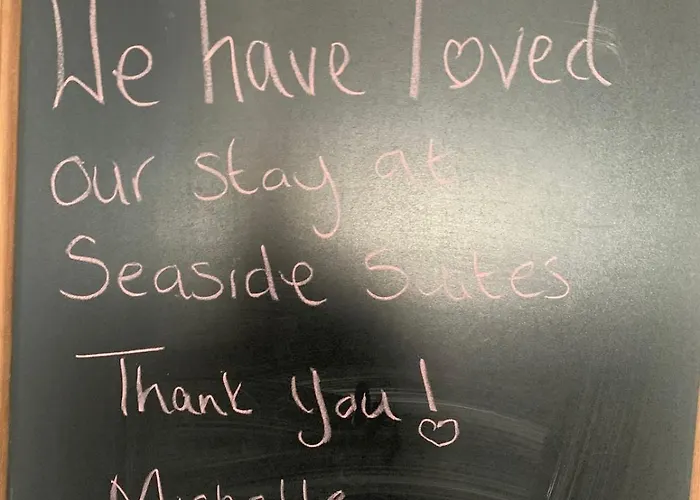 We have loved
our stay at
Seaside Suites
Thank You!
Michelle